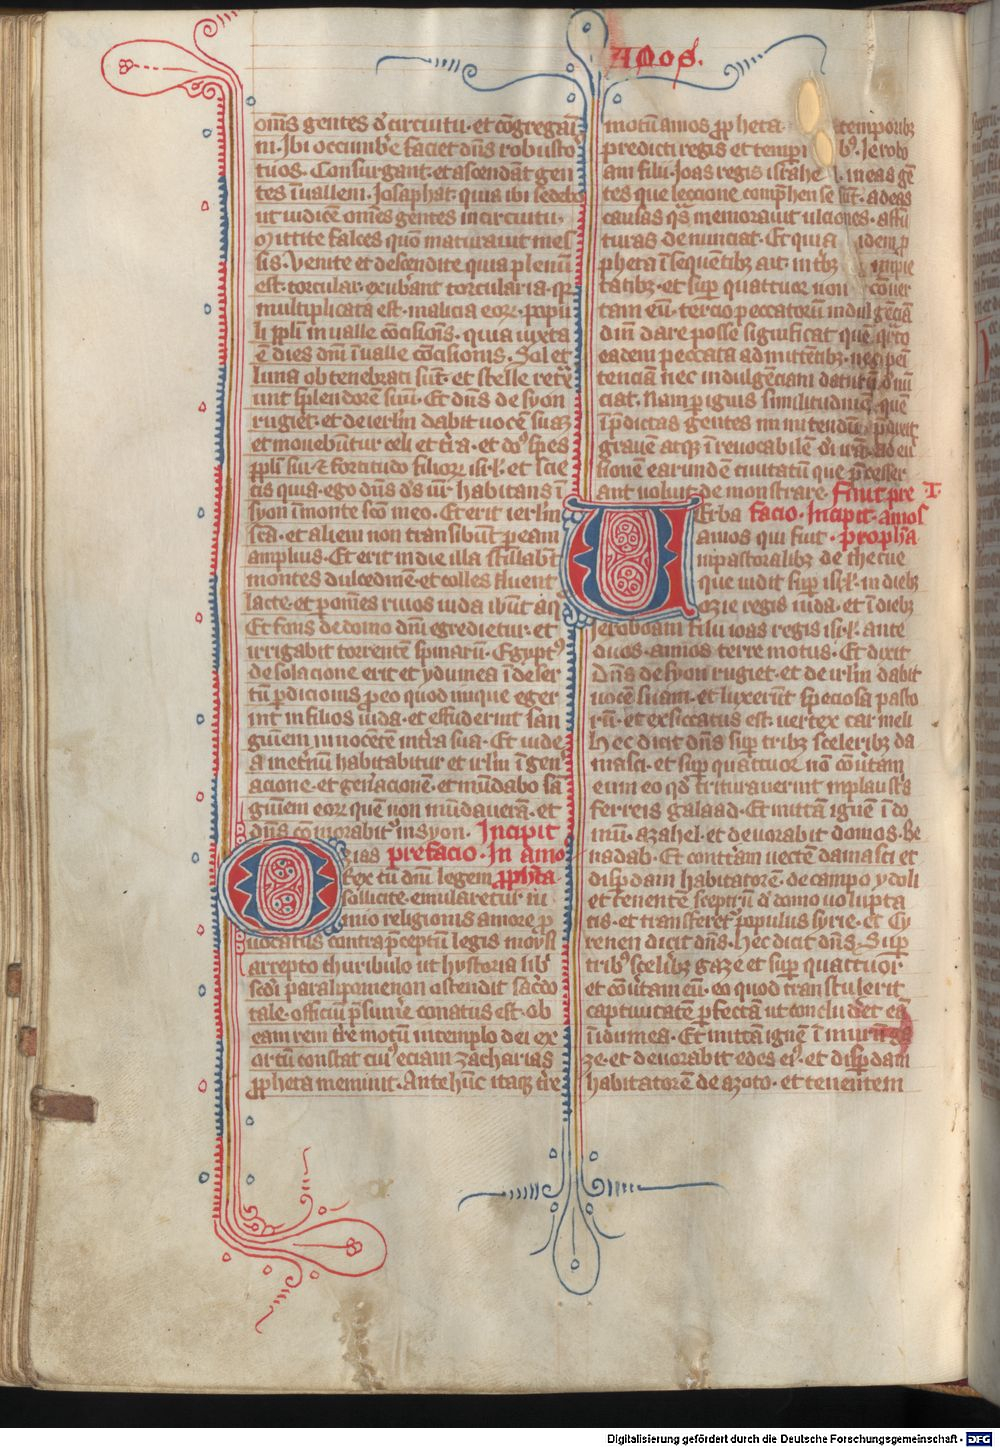 Amos.
oms gentes d̄ circuitu · et congregami
ni · Ibi occumbe̅ faciet dn̅s robusto
tuos · Consurgant · et ascendāt gen
tes ī uallem Josaphat · quia ibi sedebo
ut iudicē omēs gentes in circuitu ·
Mittite falces quō maturauit mes
sis · Venite et descendite quia plenū
est torcular · exubāt torcularia · qr
multiplicata est · malicia eoꝝ · popu
li pl̅i in ualle cōcisionis · quia iuxta
ē dies dn̅i ī ualle cōcisionis · Sol et
luna obtenebrati sūt · et stelle retᵃx
unt splendorē suū · Et dn̅s de syon
rugiet · et de ierl̅m dabit uocē suaꝫ
et mouebūtur celi et t̅ra · et dn̅s spes
pp̅li sui · et fortitudo filioꝝ isr̅l · et scie
tis quia · ego dn̅s d̅s ur̅ habitans ī
syon ī monte sc̅o meo · Et erit ierl̅m
sc̅a · et alieni non transibūt p eam
amplius · Et erit in die illa stillabūt
montes dulcedinē · et colles fluent
lacte · et p om̅es riuos iuda ibūt aq̅
Et fons de domo dn̅i egredietur · et
irrigabit torrentē spinarū · Egyptꝰ
desolacione erit et ydumea ī deser
tū pdicionis p eo quod inique eger
int in filios iuda · et effuderint san
guinem innocētē in t̅ra sua · Et iude
a in et̅nū habitabitur et irl̅m ī gen̅
acione · et gen̅acionē · et mūdabo sā
guinem eoꝝ quē non mūdauerā · et
dn̅s cōmorabitᵘ in syon · Incipit
Ozias prefacio · In amo
Rex cū dn̅i legem pp̅heta
sollicite emularetur ni
mio religionis amore p
uocatus contra p̅ceptū legis moysi
arrepto thuribulo ut hystoria libᵣ
sc̅di paralipomenon ostendit sac̅do
tale · officiū p̅sum̅e conatus est · ob
eam rem t̅re motū in templo dei ex
ortū constat cuiꝰ eciam zacharias
pp̅heta meminit · Ante hūc itaqꝫ t̅re
motū amos pp̅heta · temporibꝫ
predicti regis et temp̅i bꝰ · Jerobo
am filii · Joas regis israhe l · in eas gē
tes que leccione comp̅hense sūt · ad eas
causas qᵃs memorauit ulciones · a futu
turas denunciat · Et quia idem p
pheta ī sequentibꝫ ait · in tbꝫ impie
tatibꝫ · et sup̅ quattuor non cōuer
tam eū · tercio peccatorū indulgēciā
diuī dare posse significat quē qrto
eadem peccata admittētibꝫ · neqꝫ peni
tenciam nec indulgēciam daturū d̅nū
ciat · Nam p ignis similitudinē · quē
ī p̅dictas gentes
grauē atqꝫ ī reuocabilē
sionē earundē ciuitatū que p̅cesser
ant uoluit demonstrare · Finit pre
Uerba facio · Incipit · amos
amos qui fuit · propha
in pastoralibꝫ de thecue
que uidit sup̅ isr̅l · in diebꝫ
ozie regis iuda · et ī diebꝫ
Jeroboam filii ioas regis isr̅l · ante
duos · annos terre motus · Et dixit
Dn̅s de syon rugiet · et de irl̅m dabit
uocē suam · et luxerūt speciosa pasto
rū · et exsiccatus est uertex carmeli
Hec dicit dn̅s sup̅ tribꝫ sceleribꝫ da
masci · et sup̅ quattuor nō cōu̅tam
eum eo qd̅ trituauerint in plaustᵃs
ferreis galaad · Et mittā ignē ī do
mū · azahel · et deuorabit domos · Be
nadab · Et cont̅am uectē damasci et
disp̅dam habitatorē · de campo ydoli
et tenentē sceptrū d̅ domo uolupta
tis · et transferetᵘ populus syrie · et Cy
renen dicit dn̅s · Hec dicit dn̅s · Sup̅
tribꝰ scel̅ibꝫ gaze et sup̅ quattuor
et cōu̅tam eū · eo quod transtulerit
captiuitatē p̅fectā ut concludēt eā
ī idumea · Et mittā ignē ī murū ga
ze · et deuorabit edes eiꝰ · et disp̅dam
habitatorē de azoto · et tenentem
Digitalisierung gefördert durch die Deutsche Forschungsgemeinschaft - DFG